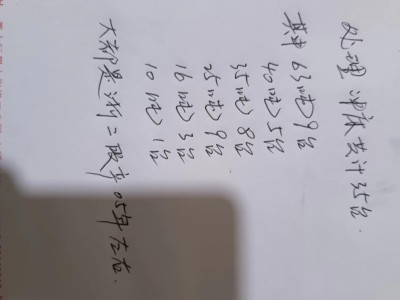 处理冲床共计35台.
其中63吨9台
40吨5台
35吨8台
25吨9台
16吨3台
10吨1台
大都是浙二 05年左右.